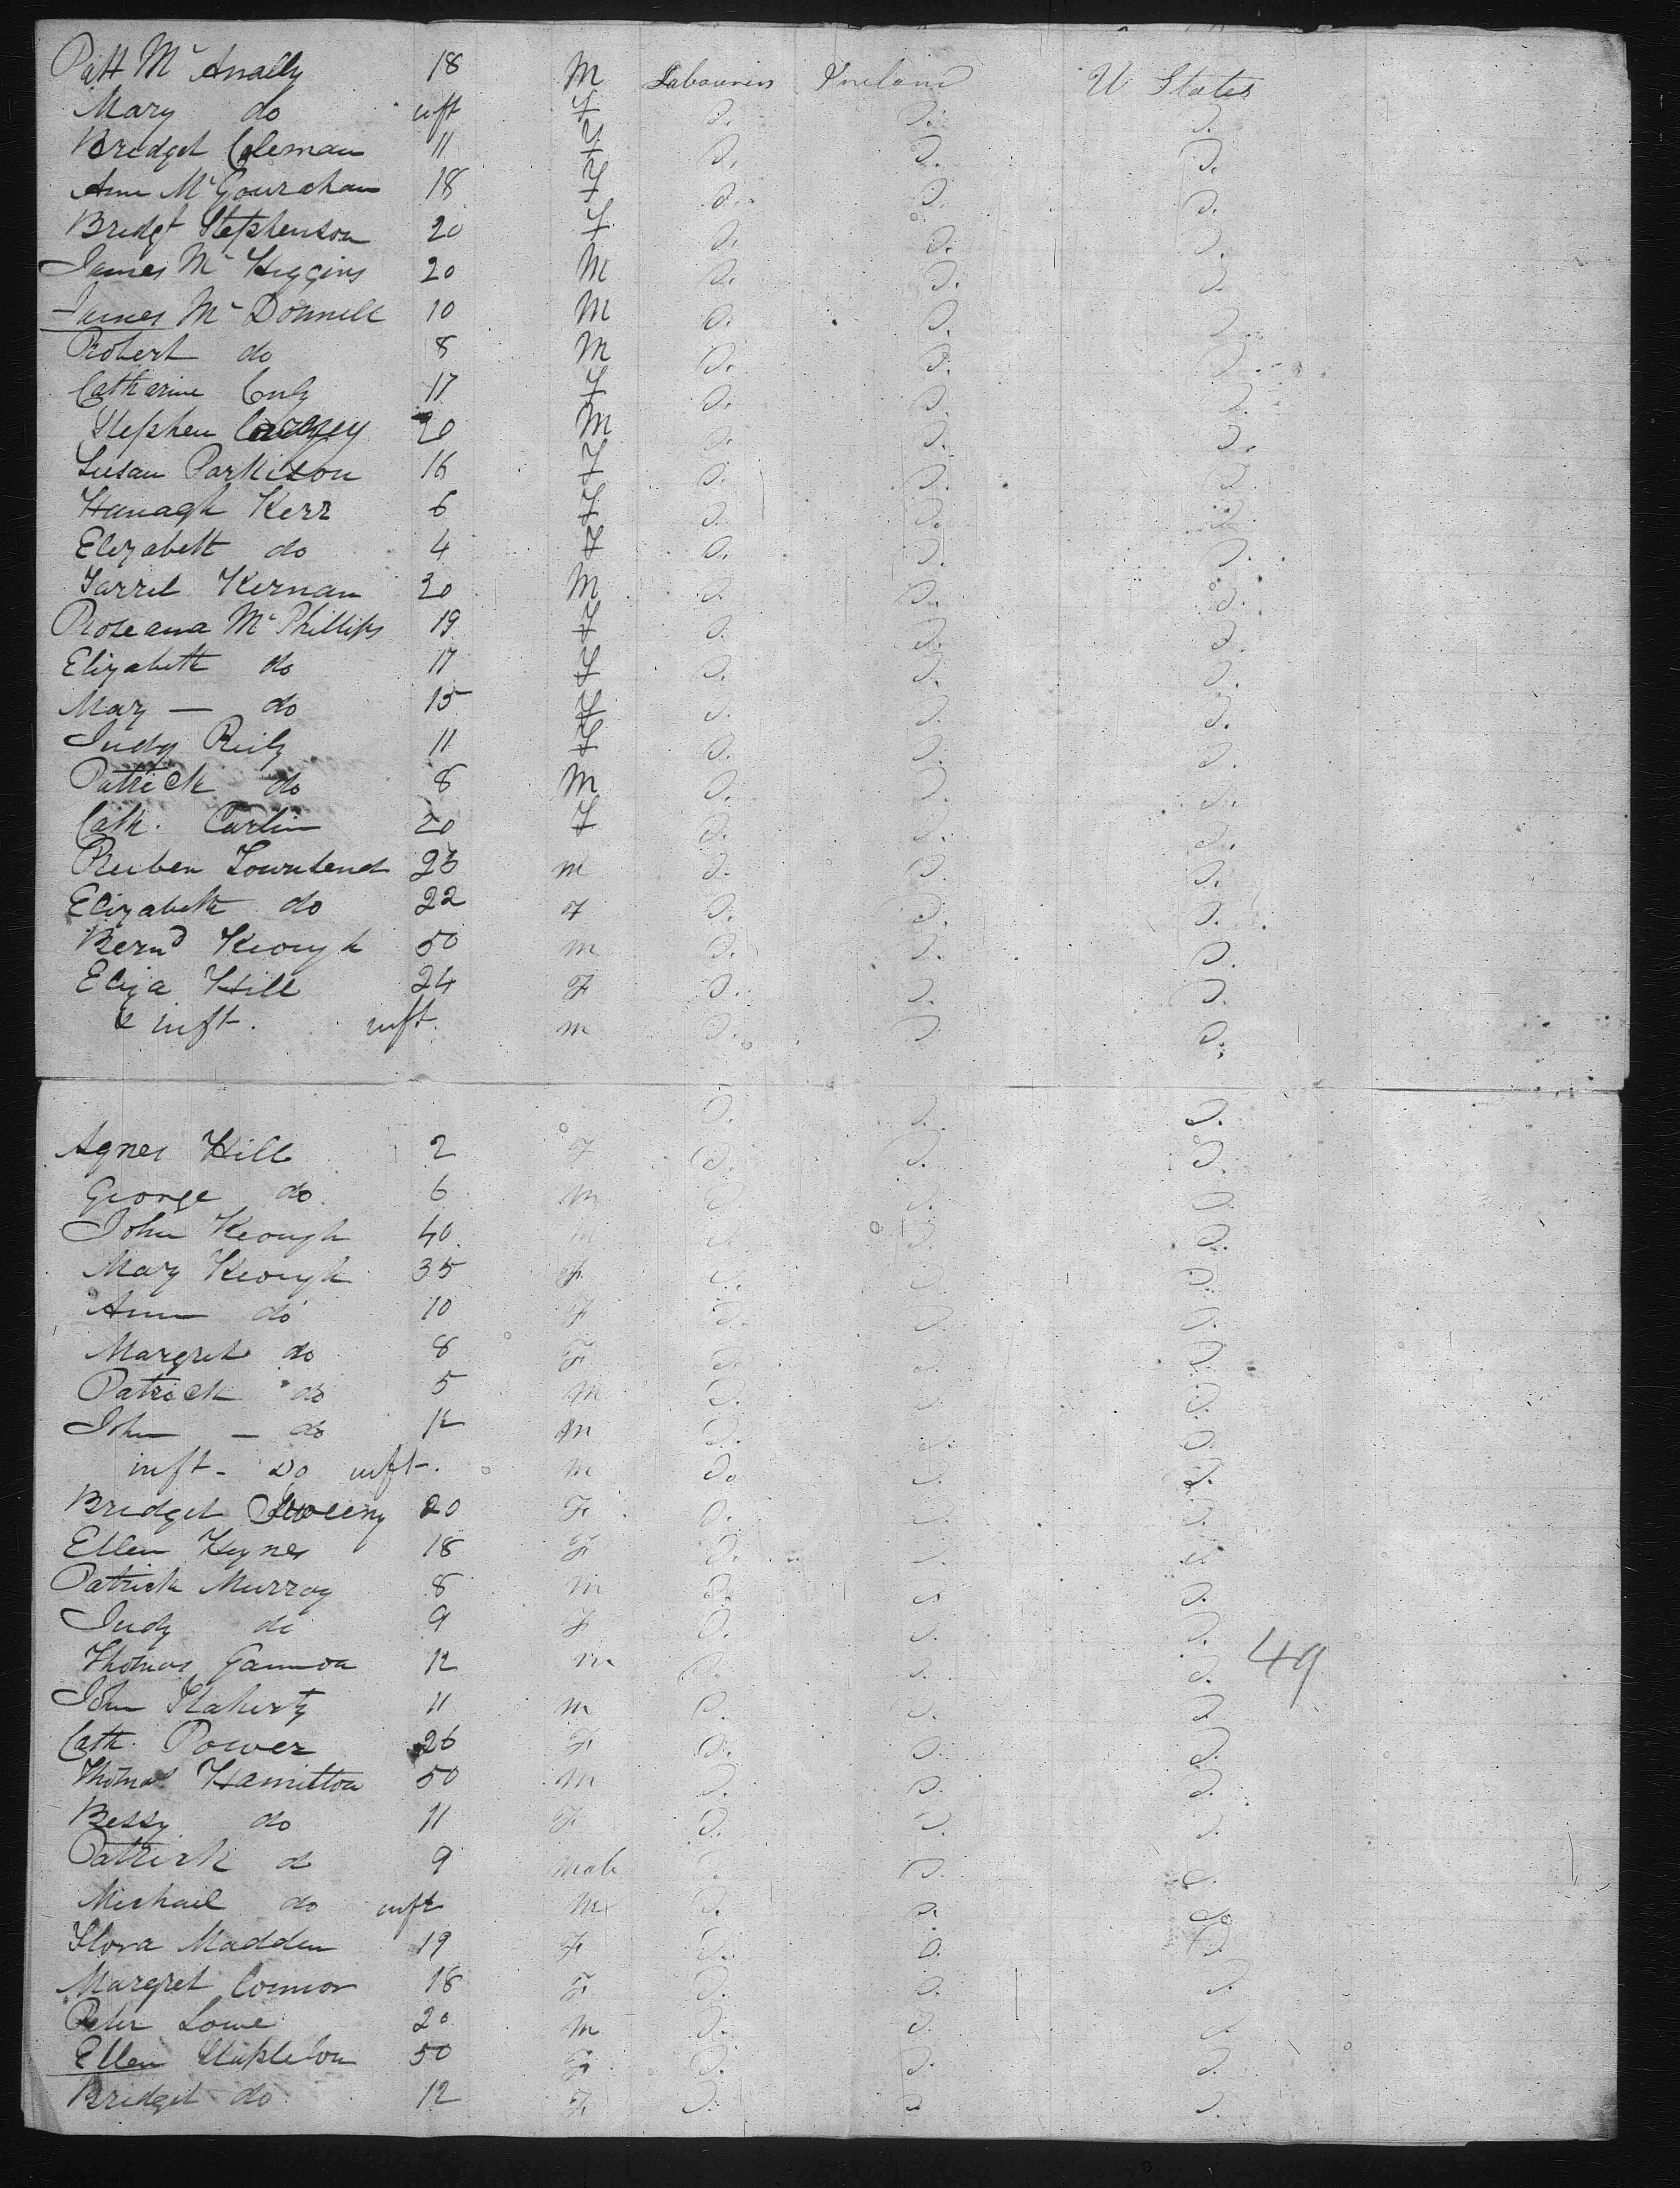 Patt Mc Anally 18 M Labourers Ireland U States
Mary do inft F D. D. D.
Bridget Coleman 11 F D. D. D.
Ann Mc Gourahan 18 F D. D. D.
Bridgt Stephenson 20 F D. D. D.
James Mc Higgins 20 M D. D. D.
James Mc Donnell 10 M D. D. D.
Robert do 8 M D. D. D.
Catharine 17 F D. D. D.
Stephen 20 M D. D. D.
Susan Parkison 16 F D. D. D.
Hanagh Kerr 6 F D. D. D.
Elizabeth do 4 F D. D. D.
Farrel Kernan 30 M D. D. D.
Roseana Mc Phillips 19 F D. D. D.
Elizabeth do 17 F D. D. D.
Mary — do 15 F D. D. D.
Judy Reily 11 F D. D. D.
Patrick do 8 M D. D. D.
Cath. Carlin 20 F D. D. D.
Reuben Townsend 26 m D. D. D.
Elizabeth do 22 F D. D. D.
Bernd Keough 50 m D. D. D.
Eliza Hill 24 F D. D. D.
& inft. inft. m D. D. D.
D. D. D.
Agnes Hill 2 F D. D. D.
George do 6 m D. D. D.
John Keough 40 m D. D. D.
Mary Keough 35 F D. D. D.
Ann do 10 F D. D. D.
Margret do 8 F D. D. D.
Patrick do 5 m D. D. D.
John — do 12 m D. D. D.
inft - Do inft. m Do D. D.
Bridget Sweeny 20 F D. D. D.
Ellen Hynes 18 F D. D. D.
Patrick Murray 8 m D. D. D.
Judy do 9 F D. D. D.
Thomas Gannon 12 m D. D. D. 49
John Flaherty 11 m D. D. D.
Cath. Power 26 F D. D. D.
Thomas Hamilton 50 m D. D. D.
Bessy do 11 F D. D. D.
Patrick do 9 male D. D. D.
Michael do inft M D. D. D.
Flora Madden 19 F D. D. D.
Margret Connor 18 F D. D. D.
Peter Lowe 20 m D. D. D.
Ellen Stapleton 50 F D. D. D.
Bridget do 12 F D. D. D.